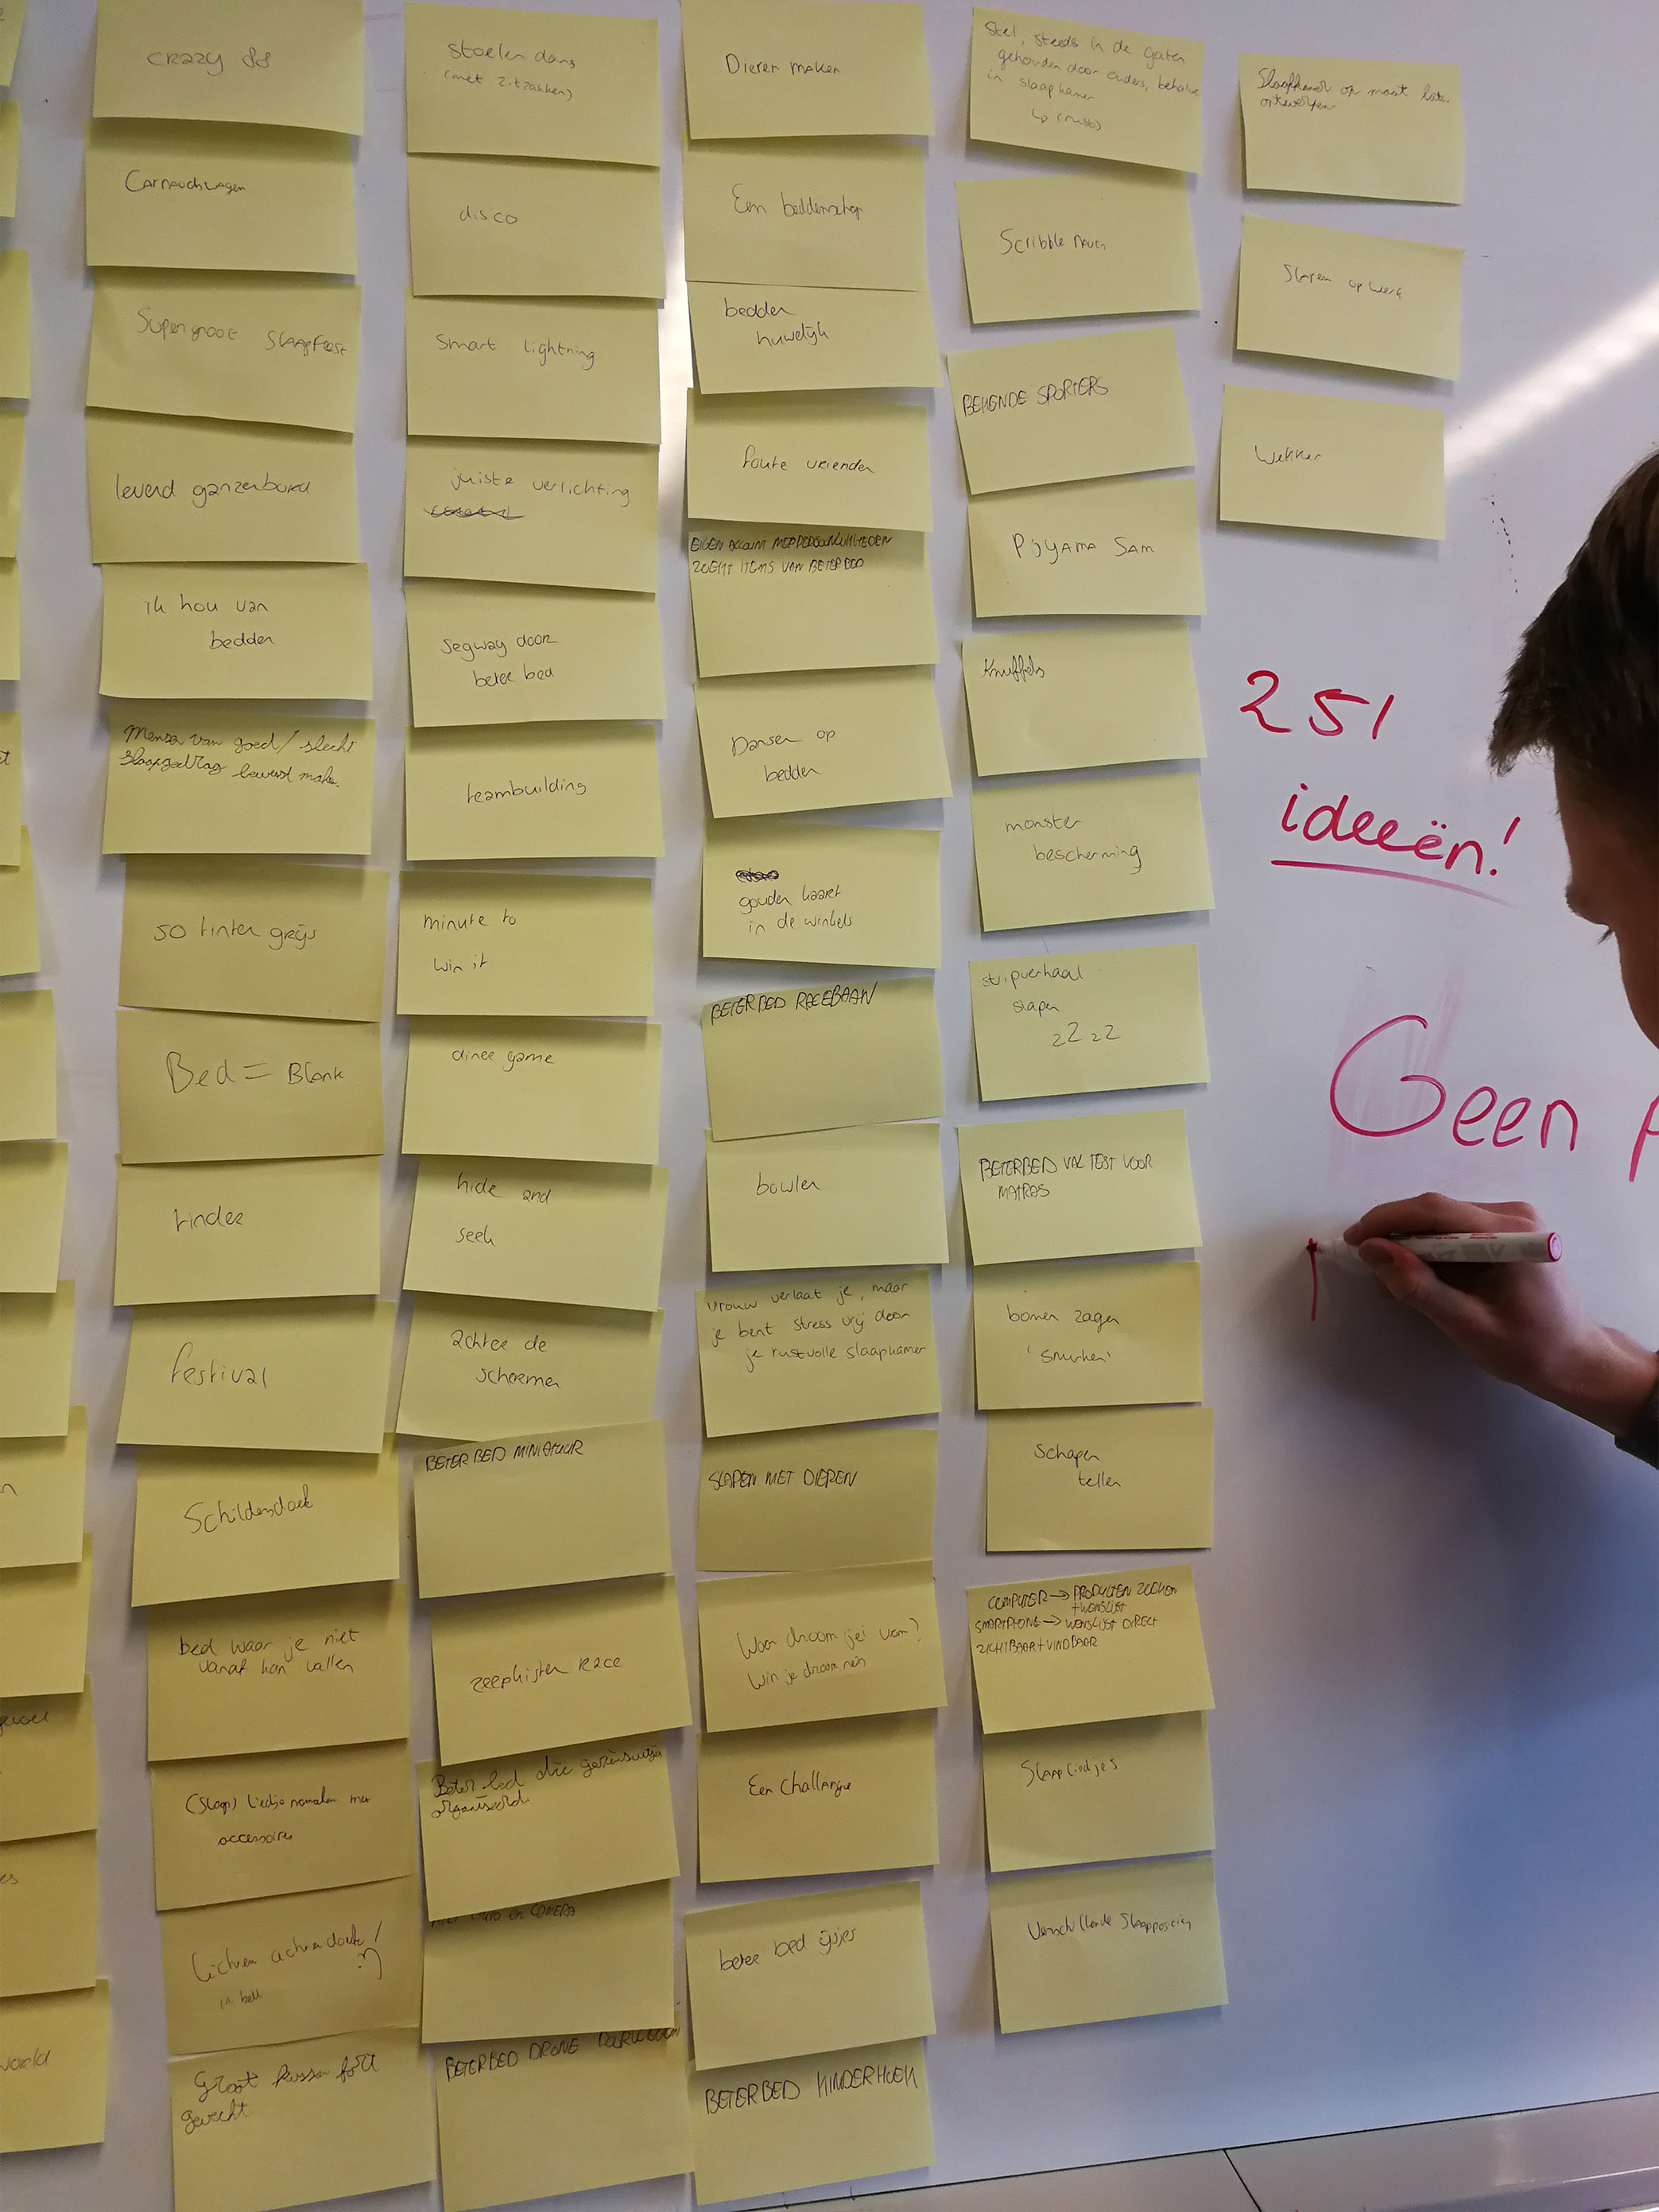 crazy 88
Carnavalwagen
Supergroot slaapfeest
levend ganzenbord
ik hou van
bedden
Mensen van goed/slecht
slaapgedrag bewust maken.
50 tinten grijs
Bed = Blank
tinder
festival
Schildersdoek
bed waar je niet
vanaf kan vallen
(slaap) liedje namaken met
accessoires
Lichten achter doek/
in bed
Groot kussen fort
gevecht
stoelen dans
(met zitzakken)
disco
smart lightning
juiste verlichting
segway door
beter bed
teambuilding
minute to
win it
diner game
hide and
seek
achter de
schermen
BETER BED MINIATUUR
zeepkisten race
Beter bed die gezinsuitje
organiseerd.
CAMERA
BETERBED DRONE
Dieren maken
Een beddenschip
bedden
huwelijk
foute vrienden
EIGEN ACCOUNT
ZOEKT ITEMS VAN BETERBED
Dansen op
bedden
gouden kaart
in de winkels
BETERBED RACEBAAN
bowlen
vrouw verlaat je, maar
je bent stress vrij door
je rustvolle slaapkamer
SLAPEN MET DIEREN
Waar droom jij van?
Win je droom reis
Een challange
beter bed ijsjes
BETERBED KINDERHOEK
Stel, steeds in de gaten
gehouden door ouders, behalve
in slaapkamer
↳ (rust)
Scribble
BEKENDE SPORTERS
Pijyama Sam
Knuffels
monster
bescherming
stripverhaal
slapen
zZzz
BETERBED VAL TEST VOOR
MATRAS
bomen zagen
'snurken'
Schapen
tellen
COMPUTER → PRODUKTEN ZOEKEN
+ WENSLIJST
SMARTPHONE → WENSLIJST DIRECT
ZICHTBAAR + VINDBAAR
Slaapliedjes
Verschillende Slaapposities
Slaapkamer op maat laten
ontwerpen
Slapen op werk
Wekker
251
ideeën!
Geen